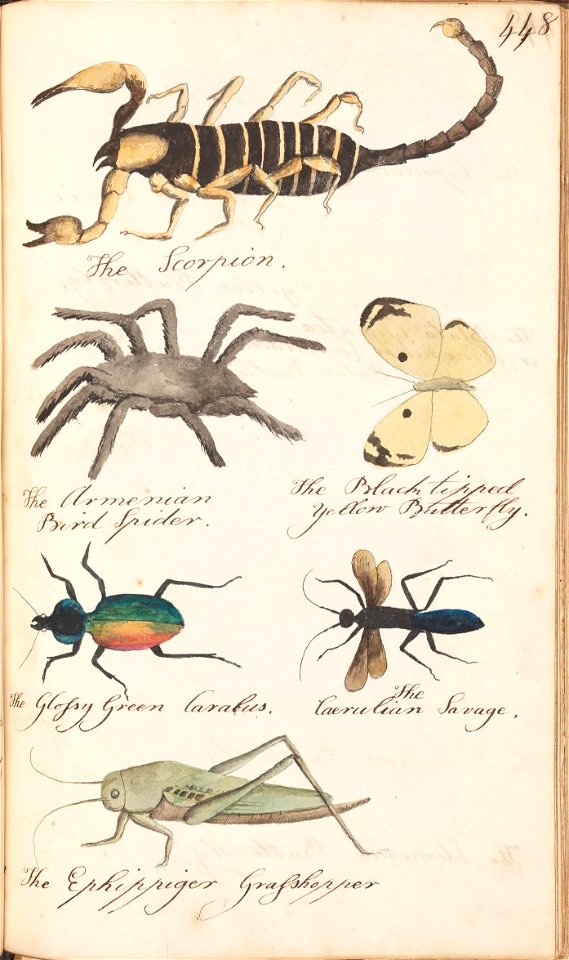 448
The Scorpion.
The Armenian
Bird Spider.
The Black tipped
Yellow Butterfly.
The Glofsy Green Carabus.
The
Caerulian Savage.
The Ephippiger Grafshopper